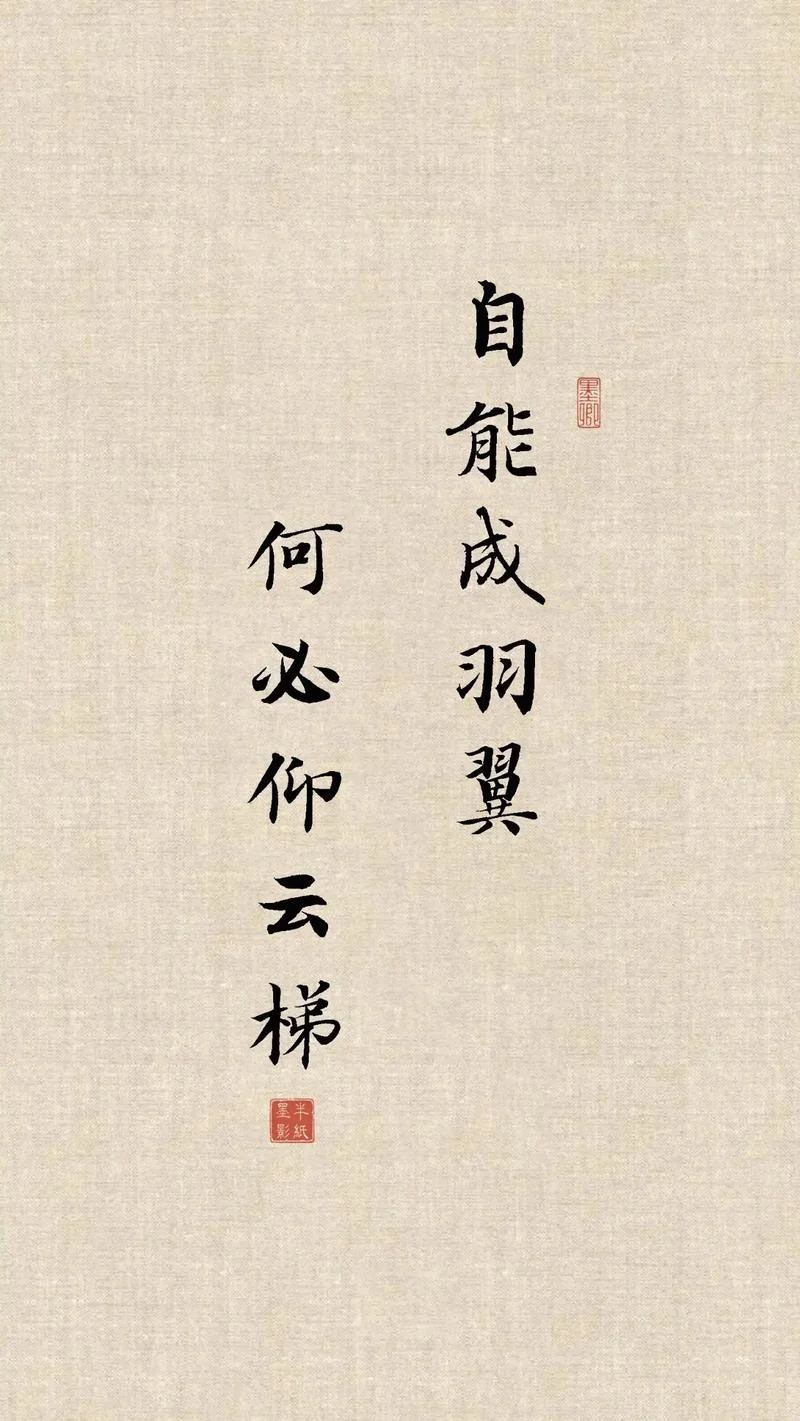 自能成羽翼
墨卿
何必仰云梯
半紙
墨影